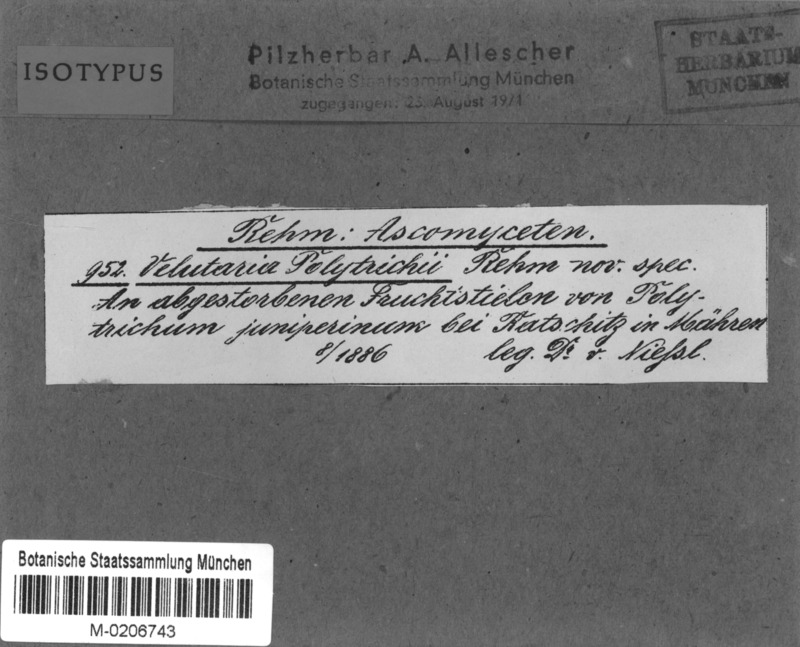 ISOTYPUS
Pilzherbar A. Allescher
Botanische Staatssammlung München
zugegangen: 25. August 1971
STAATS-
HERBARIUM
MÜNCHEN
Rehm: Ascomyceten.
952. Velutaria Polytrichii Rehm nov. spec.
An abgestorbenen Fruchtstielen von Poly-
trichum juniperinum bei Ratschitz in Mähren
8/1886 leg. Dr. v. Niessl.
Botanische Staatssammlung München
M-0206743